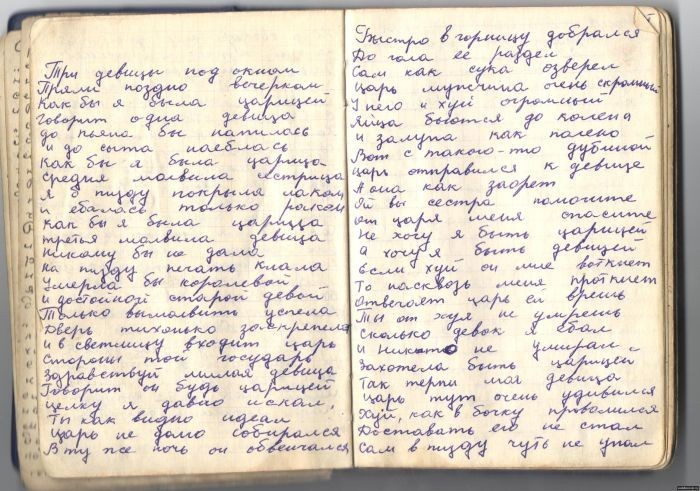 Три девицы под окном
Пряли поздно вечерком
Как бы я была царицей
Говорит одна девица
до пьяна бы напилась
и до сыта наеблась
Как бы я была царица
Средня молвила сестрица
Я б пизду покрыла лаком
и ебалась только раком
Как бы я была царица
третья молвила девица
Никому бы не дала
На пизду печать клала
Умерла бы королевой
и достойной старой девой
Только вымолвить успела
Дверь тихонько заскрепела
и в светлицу входит царь
Стороны той государь
Здравствуй милая девица
Говорит он будь царицей
Целку я давно искал,
Ты как видно идеал
Царь не долго собирался
В ту же ночь он обвенчался
Быстро в горницу добрался
До гола её раздел
Сам как сука озверел
Царь мужчина очень скромный
У него и хуй огромный
Яйца бьются до колена
и залупа как полено
Вот с такою-то дубиной
Царь отправился к девице
А она как заорет
Ой вы сестра помогите
От царя меня спасите
Не хочу я быть царицей
а хочу я быть девицей
Если хуй он мне воткнет
То насквозь меня проткнет
Отвечает царь ей врешь
Ты от хуя не умрешь
Сколько девок я ебал
и никто не умирал
Захотела быть царицей
Так терпи моя девица
Царь тут очень удивился
Хуй, как в бочку провалился
Доставать его не стал
Сам в пизду чуть не упал